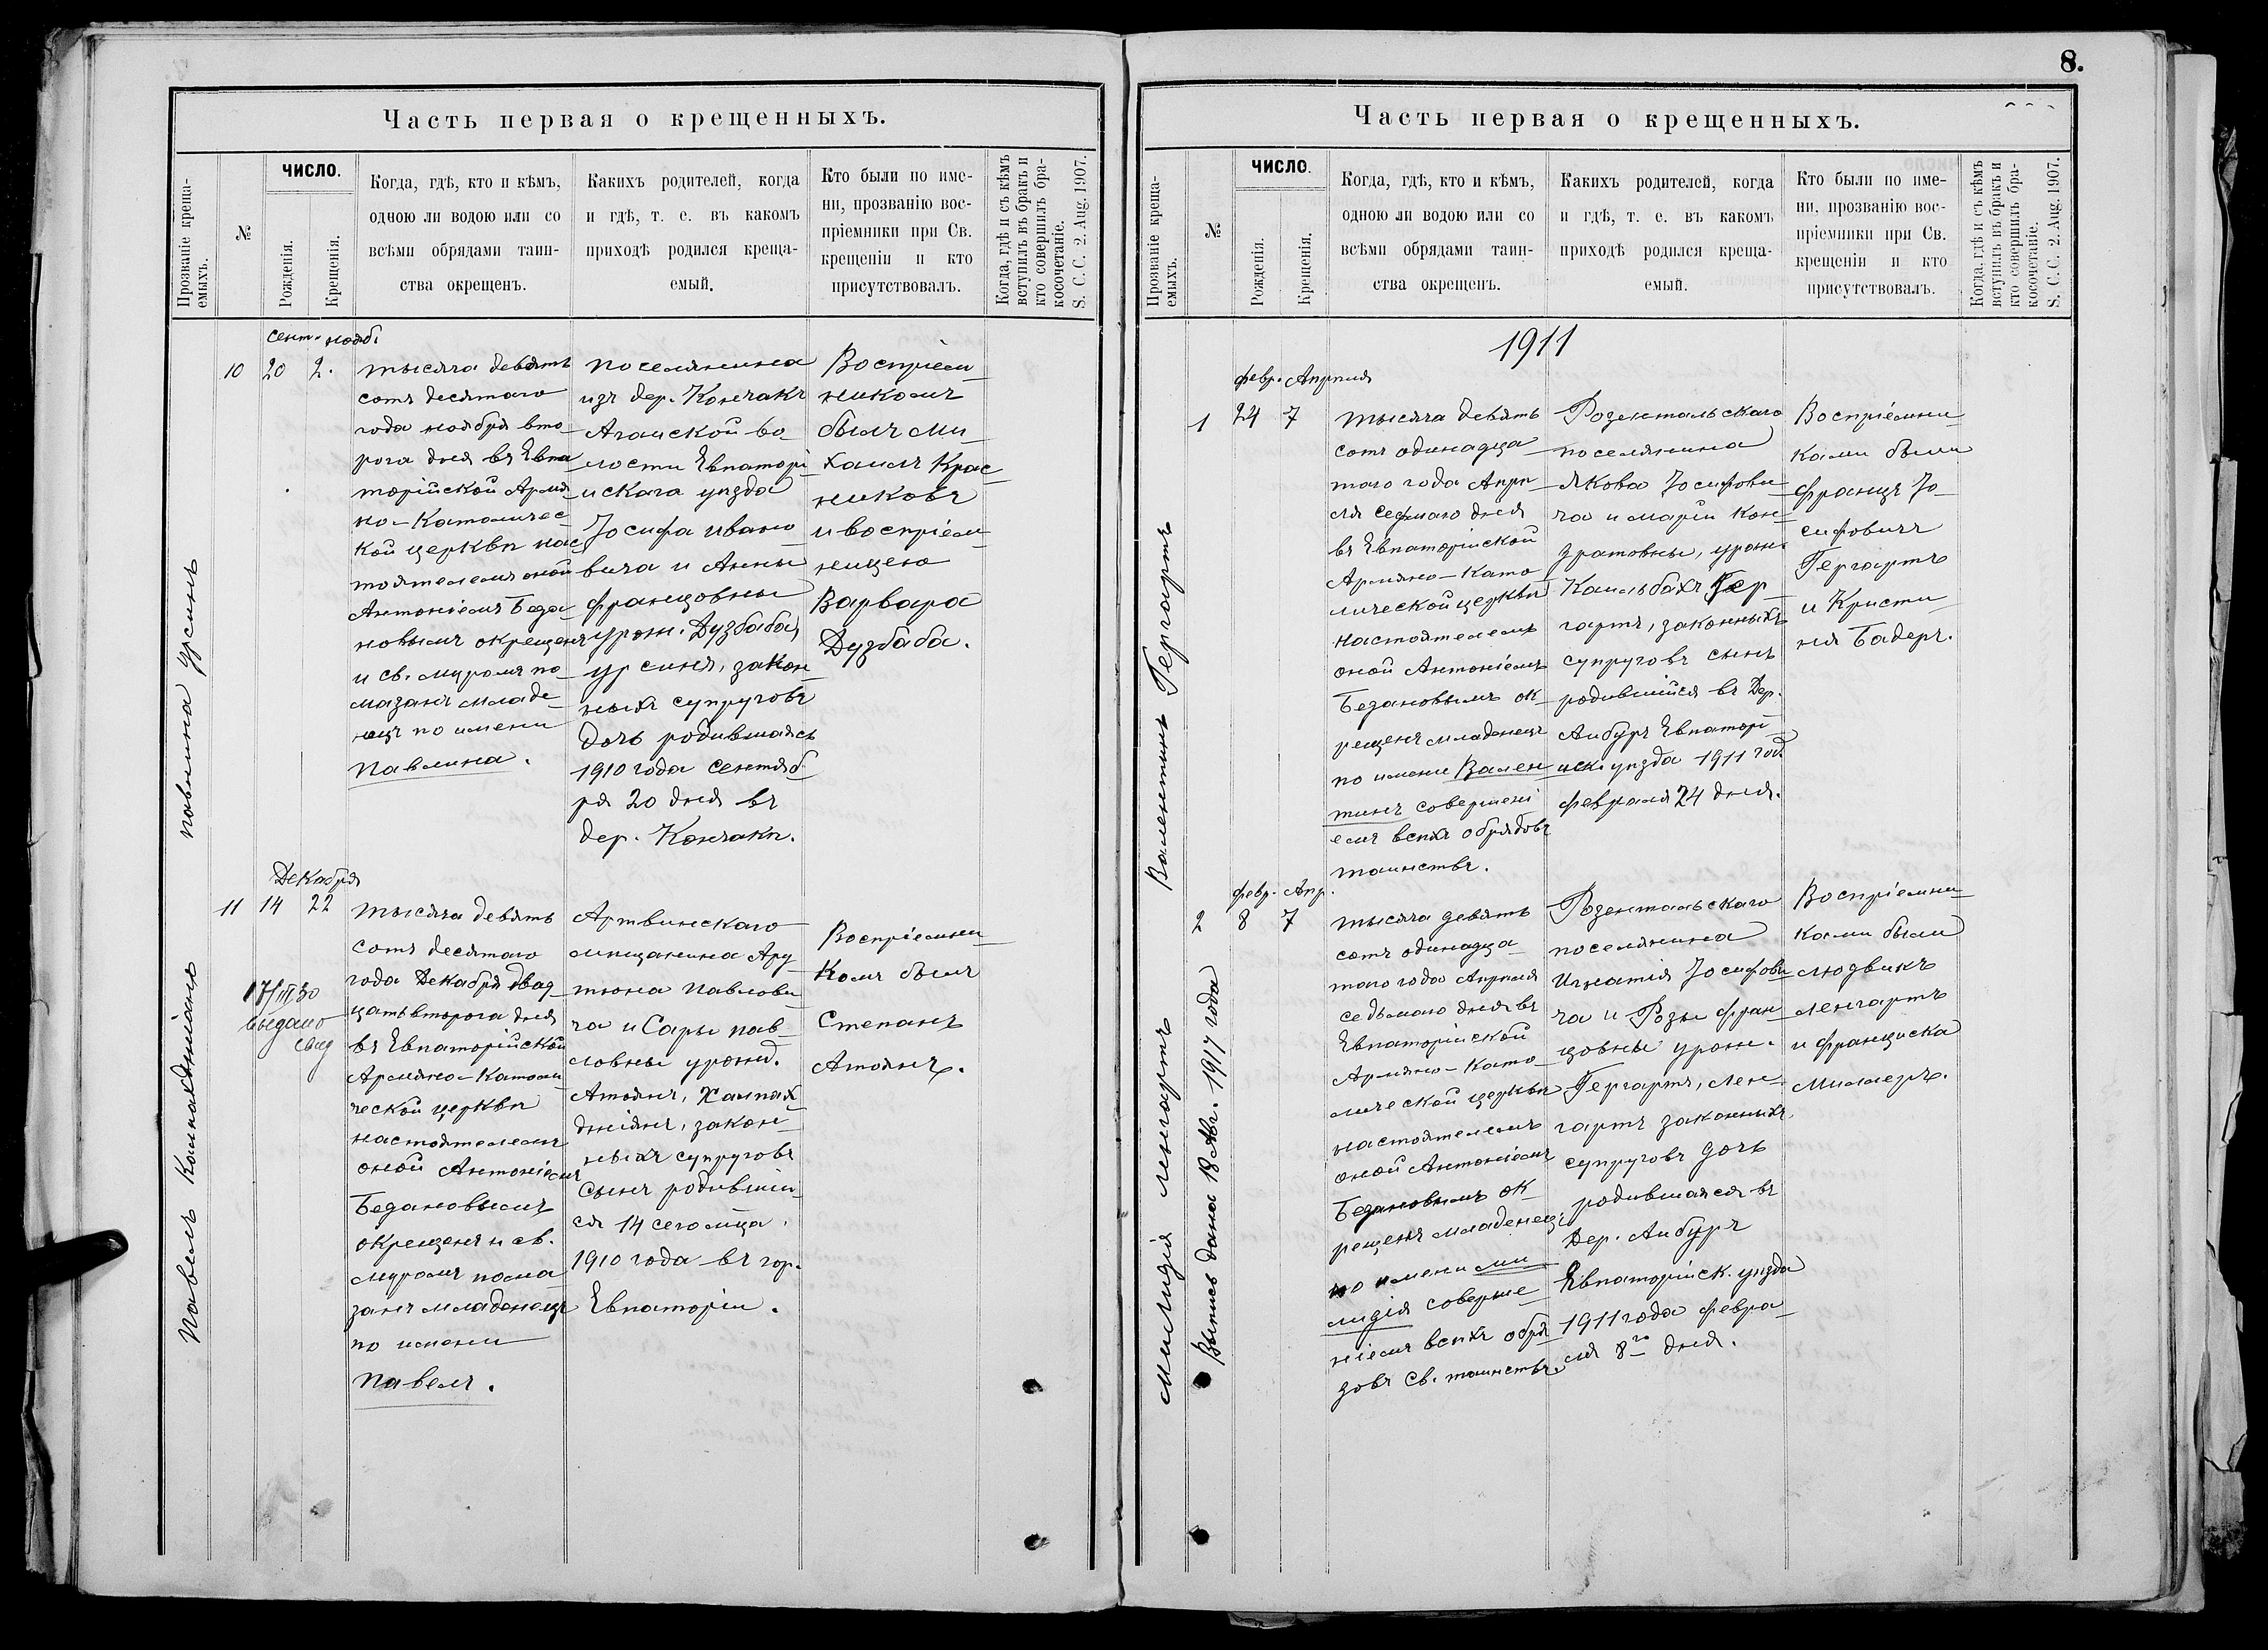 8.
Часть первая о крещенныхъ.
Прозваніе креща-
емыхъ.
№
ЧИСЛО.
Рожденія.
Крещенія.
Когда, гдѣ, кто и кѣмъ,
одною ли водою или со
всѣми обрядами таин-
ства окрещенъ.
Какихъ родителей, когда
и гдѣ, т. е. въ какомъ
приходѣ родился креща-
емый.
Кто были по име-
ни, прозванію вос-
пріемники при Св.
крещеніи и кто
присутствовалъ.
Когда, гдѣ и съ кѣмъ
вступилъ въ бракъ и
кто совершилъ бра-
косочетаніе.
S. C. C. 2. Aug. 1907.
Павлина Урсинъ
10
сент. нояб.
20 2.
тысяча девять
сотъ десятаго
года ноября вто
рога дня въ Евпа
торійской Армя
но-Католичес
кой церкви нас
тоятелемъ оной
Антоніемъ Беза
новымъ окрещенъ
и св. муромъ по
мазанъ младе
нецъ по имени
Павлина.
поселянина
изъ дер. Кончакъ
Агайской во
лости Евпаторі
искаго уѣзда
Іосифа Ивано
вича и Анны
Францовны
урож. Дузбаба,
Урсинъ, закон
ныхъ супруговъ
дочь родившаясь
1910 года сентяб
ря 20 дня въ
дер. Кончакъ.
Воспріем
никомъ
былъ Ми
хаилъ Крас
никовъ
и воспріем
ницею
Варвара
Дузбаба.
Павелъ
11
Декабря
14 22
17/III 30
выдано
свид
тысяча девять
сотъ десятаго
года Декабря двад
цать второга дня
въ Евпаторійской
Армяно-Католи
ческой церкви
настоятелемъ
оной Антоніемъ
Бедановымъ
окрещенъ и св.
муромъ пома
занъ младенецъ
по имени
Павелъ.
Артвинскаго
мѣщанина Ару
тюна Павлови
ча и Сары Пав
ловны урожд.
Атоянъ, Хампах
дніянъ, закон
ныхъ супруговъ
сынъ родившій
ся 14 сего мѣца
1910 года въ гор.
Евпаторіи.
Воспріемни
комъ былъ
Степанъ
Атоянъ.
Часть первая о крещенныхъ.
Прозваніе креща-
емыхъ.
№
ЧИСЛО.
Рожденія.
Крещенія.
Когда, гдѣ, кто и кѣмъ,
одною ли водою или со
всѣми обрядами таин-
ства окрещенъ.
Какихъ родителей, когда
и гдѣ, т. е. въ какомъ
приходѣ родился креща-
емый.
Кто были по име-
ни, прозванію вос-
пріемники при Св.
крещеніи и кто
присутствовалъ.
Когда, гдѣ и съ кѣмъ
вступилъ въ бракъ и
кто совершилъ бра-
косочетаніе.
S. C. C. 2. Aug. 1907.
1911
Валентинъ Гергартъ
1
февр. Апрѣля
24 7
тысяча девять
сотъ одинадца
таго года Апрѣ
ля седмаго дня
въ Евпаторійской
Армяно-Като
лической церкви
настоятелемъ
оной Антоніемъ
Безановымъ ок
рещенъ младенецъ
по имени Вален
тинъ совершені
емъ всѣхъ обрядовъ
таинствъ.
Розентальскаго
поселянина
Якова Іосифови
ча и Маріи Кон
дратовны, урож.
Каильбахъ Гер
гартъ, законныхъ
супруговъ сынъ
родившійся въ Дер.
Аибуръ Евпаторі
иск. уѣзда 1911 год.
февраля 24 дня.
Воспріемни
ками были
Францъ Іо
сифовичъ
Гергартъ
и Кристи
ня Бадеръ.
Милидія Ленгартъ
Выпись дана 18 Авг. 1917 года
2
февр. Апр.
8 7
тысяча девять
сотъ одинадца
таго года Апрѣля
седьмаго дня въ
Евпаторійской
Армяно-Като
лической церкви
настоятелемъ
оной Антоніемъ
Безановымъ ок
рещенъ младенец.
по имени Ми
лидія соверше
ніемъ всѣхъ обря
довъ св. таинствъ.
Розентальскаго
поселянина
Игнатія Іосифови
ча и Розы Фран
цовны урож.
Гергартъ, Лен
гартъ законныхъ
супруговъ дочь
родившаяся въ
Дер. Аибуръ
Евпаторійск. уѣзда
1911 года февра
ля 8го дня.
Воспріемни
ками были
Людвикъ
Ленгартъ
и Франциска
Миллеръ.